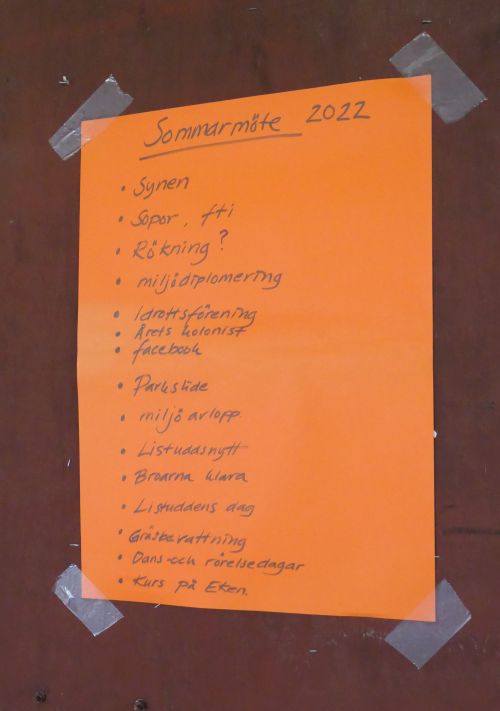 Sommarmöte 2022
• Synen
• Sopor, fti
• Rökning?
• miljödiplomering
• Idrottsförening
• Årets kolonist
• facebook
• Parkslide
• miljö avlopp.
• Listuddsnytt
• Broarna klara
• Listuddens dag
• Gräsbevattning
• Dans-och rörelsedagar
• Kurs på Eken.